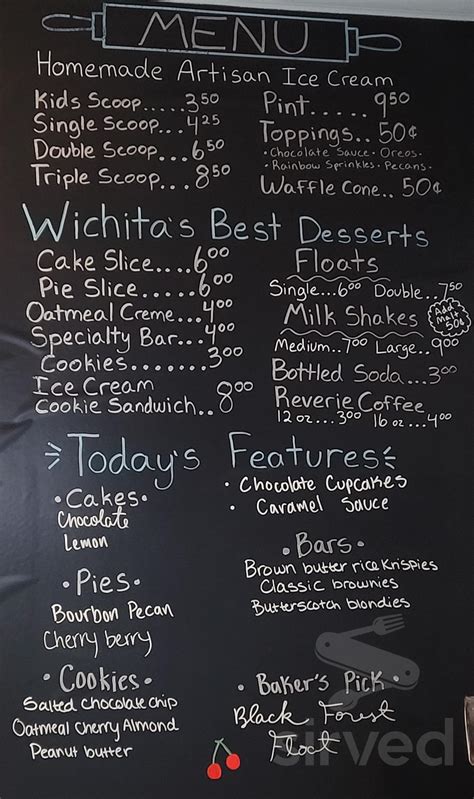 MENU
Homemade Artisan Ice Cream
Kids Scoop.....3.50
Single Scoop...4.25
Double Scoop....6.50
Triple Scoop....8.50
Pint...... 9.50
Toppings.. 50¢
• Chocolate Sauce • Oreos •
• Rainbow Sprinkles • Pecans •
Waffle Cone.. 50¢
Wichita's Best Desserts
Cake Slice....6.00
Pie Slice.....6.00
Oatmeal Creme...4.00
Specialty Bar...4.00
Cookies.......3.00
Ice Cream
Cookie Sandwich.. 8.00
Floats
Single...6.00 Double..7.50
Milk Shakes
Add Malt 50¢
Medium..7.00 Large..9.00
Bottled Soda...3.00
Reverie Coffee
12 oz...3.00 16 oz...4.00
Today's Features
• Cakes •
Chocolate
Lemon
• Pies •
Bourbon Pecan
Cherry berry
• Cookies •
Salted chocolate chip
Oatmeal Cherry Almond
Peanut butter
• Chocolate Cupcakes
• Caramel Sauce
• Bars •
Brown butter rice Krispies
Classic brownies
Butterscotch blondies
• Baker's Pick •
Black Forest
Float
sirved